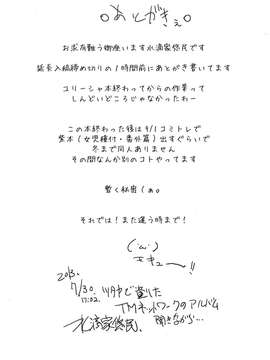 ○あとがきぇ○
お求め難う御座います水滴家悠民です
延長入稿締め切りの1時間前にあとがき書いてます
ユリーシャ本終わってからの作業って
しんどいどころじゃなかったわー
この本終わった後は9/1コミトレで
紫本(女児種付・番外篇)出すぐらいで
冬まで同人ありません
その間なんか別のコトやってます
暫く秘密(ぁ。
それでは!また逢う時まで!
エキューー!!
2013.
7/30.
17:02.
TMネットワークのアルバム
聞きながら…